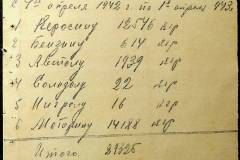 с 1го апреля 1942 г. по 1е апреля 443.
1 Керосину 12546 кгр
2 Бензину 614 кгр
3 Автолу 1939 кгр
4 Солидолу 22 кгр
5 Нигролу 16 кгр
6 Моторину 14188 кгр
Итого